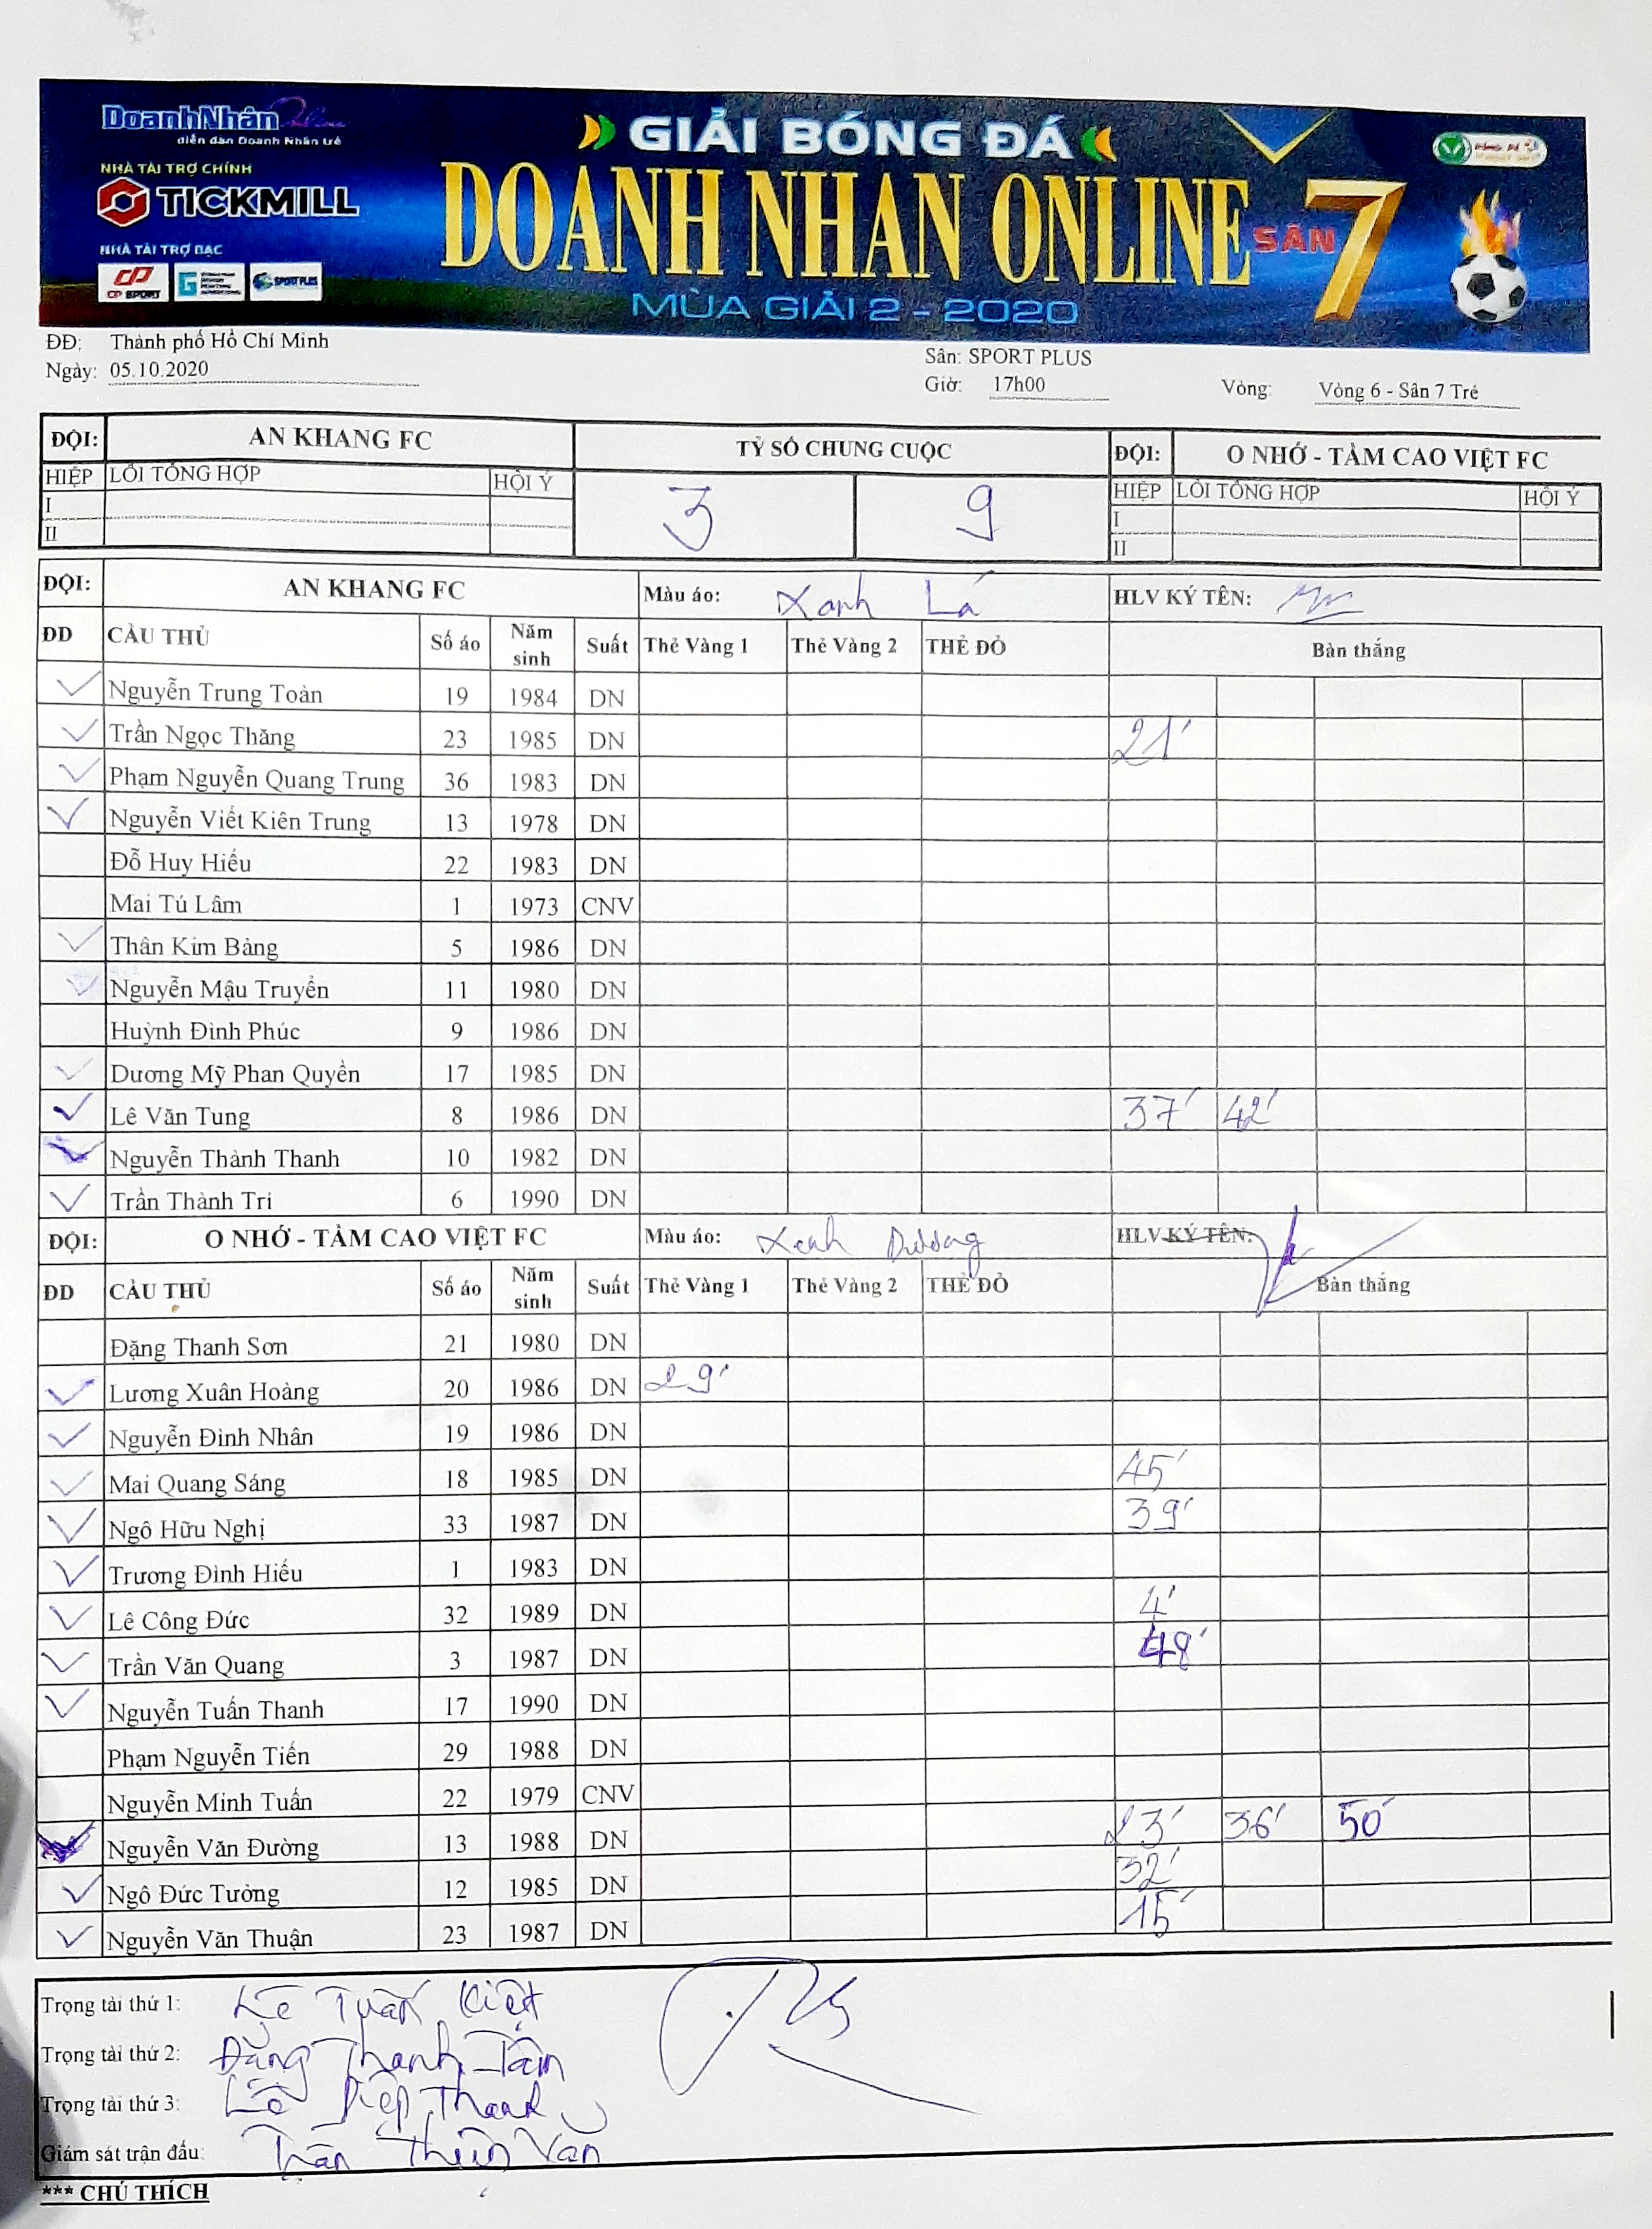 DoanhNhân Online
diễn đàn Doanh Nhân trẻ
NHÀ TÀI TRỢ CHÍNH
TICKMILL
NHÀ TÀI TRỢ BẠC
CP SPORT
SPORT PLUS
GIẢI BÓNG ĐÁ
DOANH NHAN ONLINE
SÂN 7
MÙA GIẢI 2 - 2020
ĐĐ: Thành phố Hồ Chí Minh
Sân: SPORT PLUS
Ngày: 05.10.2020
Giờ: 17h00
Vòng: Vòng 6 - Sân 7 Trẻ
ĐỘI: AN KHANG FC TỶ SỐ CHUNG CUỘC ĐỘI: O NHỚ - TẦM CAO VIỆT FC
HIỆP LỖI TỔNG HỢP HỘI Ý 3 9 HIỆP LỖI TỔNG HỢP HỘI Ý
I I
II II
ĐỘI: AN KHANG FC Màu áo: Xanh Lá HLV KÝ TÊN:
ĐD CẦU THỦ Số áo Năm sinh Suất Thẻ Vàng 1 Thẻ Vàng 2 THẺ ĐỎ Bàn thắng
Nguyễn Trung Toàn 19 1984 DN
Trần Ngọc Thăng 23 1985 DN 21'
Phạm Nguyễn Quang Trung 36 1983 DN
Nguyễn Viết Kiên Trung 13 1978 DN
Đỗ Huy Hiếu 22 1983 DN
Mai Tú Lâm 1 1973 CNV
Thân Kim Bảng 5 1986 DN
Nguyễn Mậu Truyển 11 1980 DN
Huỳnh Đình Phúc 9 1986 DN
Dương Mỹ Phan Quyền 17 1985 DN
Lê Văn Tung 8 1986 DN 37' 42'
Nguyễn Thành Thanh 10 1982 DN
Trần Thành Trí 6 1990 DN
ĐỘI: O NHỚ - TẦM CAO VIỆT FC Màu áo: Xanh Dương HLV KÝ TÊN:
ĐD CẦU THỦ Số áo Năm sinh Suất Thẻ Vàng 1 Thẻ Vàng 2 THẺ ĐỎ Bàn thắng
Đặng Thanh Sơn 21 1980 DN
Lương Xuân Hoàng 20 1986 DN 29'
Nguyễn Đình Nhân 19 1986 DN
Mai Quang Sáng 18 1985 DN 45'
Ngô Hữu Nghị 33 1987 DN 39'
Trương Đình Hiếu 1 1983 DN
Lê Công Đức 32 1989 DN 4'
Trần Văn Quang 3 1987 DN 48'
Nguyễn Tuấn Thanh 17 1990 DN
Phạm Nguyễn Tiến 29 1988 DN
Nguyễn Minh Tuấn 22 1979 CNV
Nguyễn Văn Đường 13 1988 DN 23' 36' 50'
Ngô Đức Tường 12 1985 DN 32'
Nguyễn Văn Thuận 23 1987 DN 15'
Trọng tài thứ 1: Lê Tuấn Kiệt
Trọng tài thứ 2: Đặng Thanh Tâm
Trọng tài thứ 3: Lê Diệp Thanh
Giám sát trận đấu: Trần Thiện Văn
*** CHÚ THÍCH